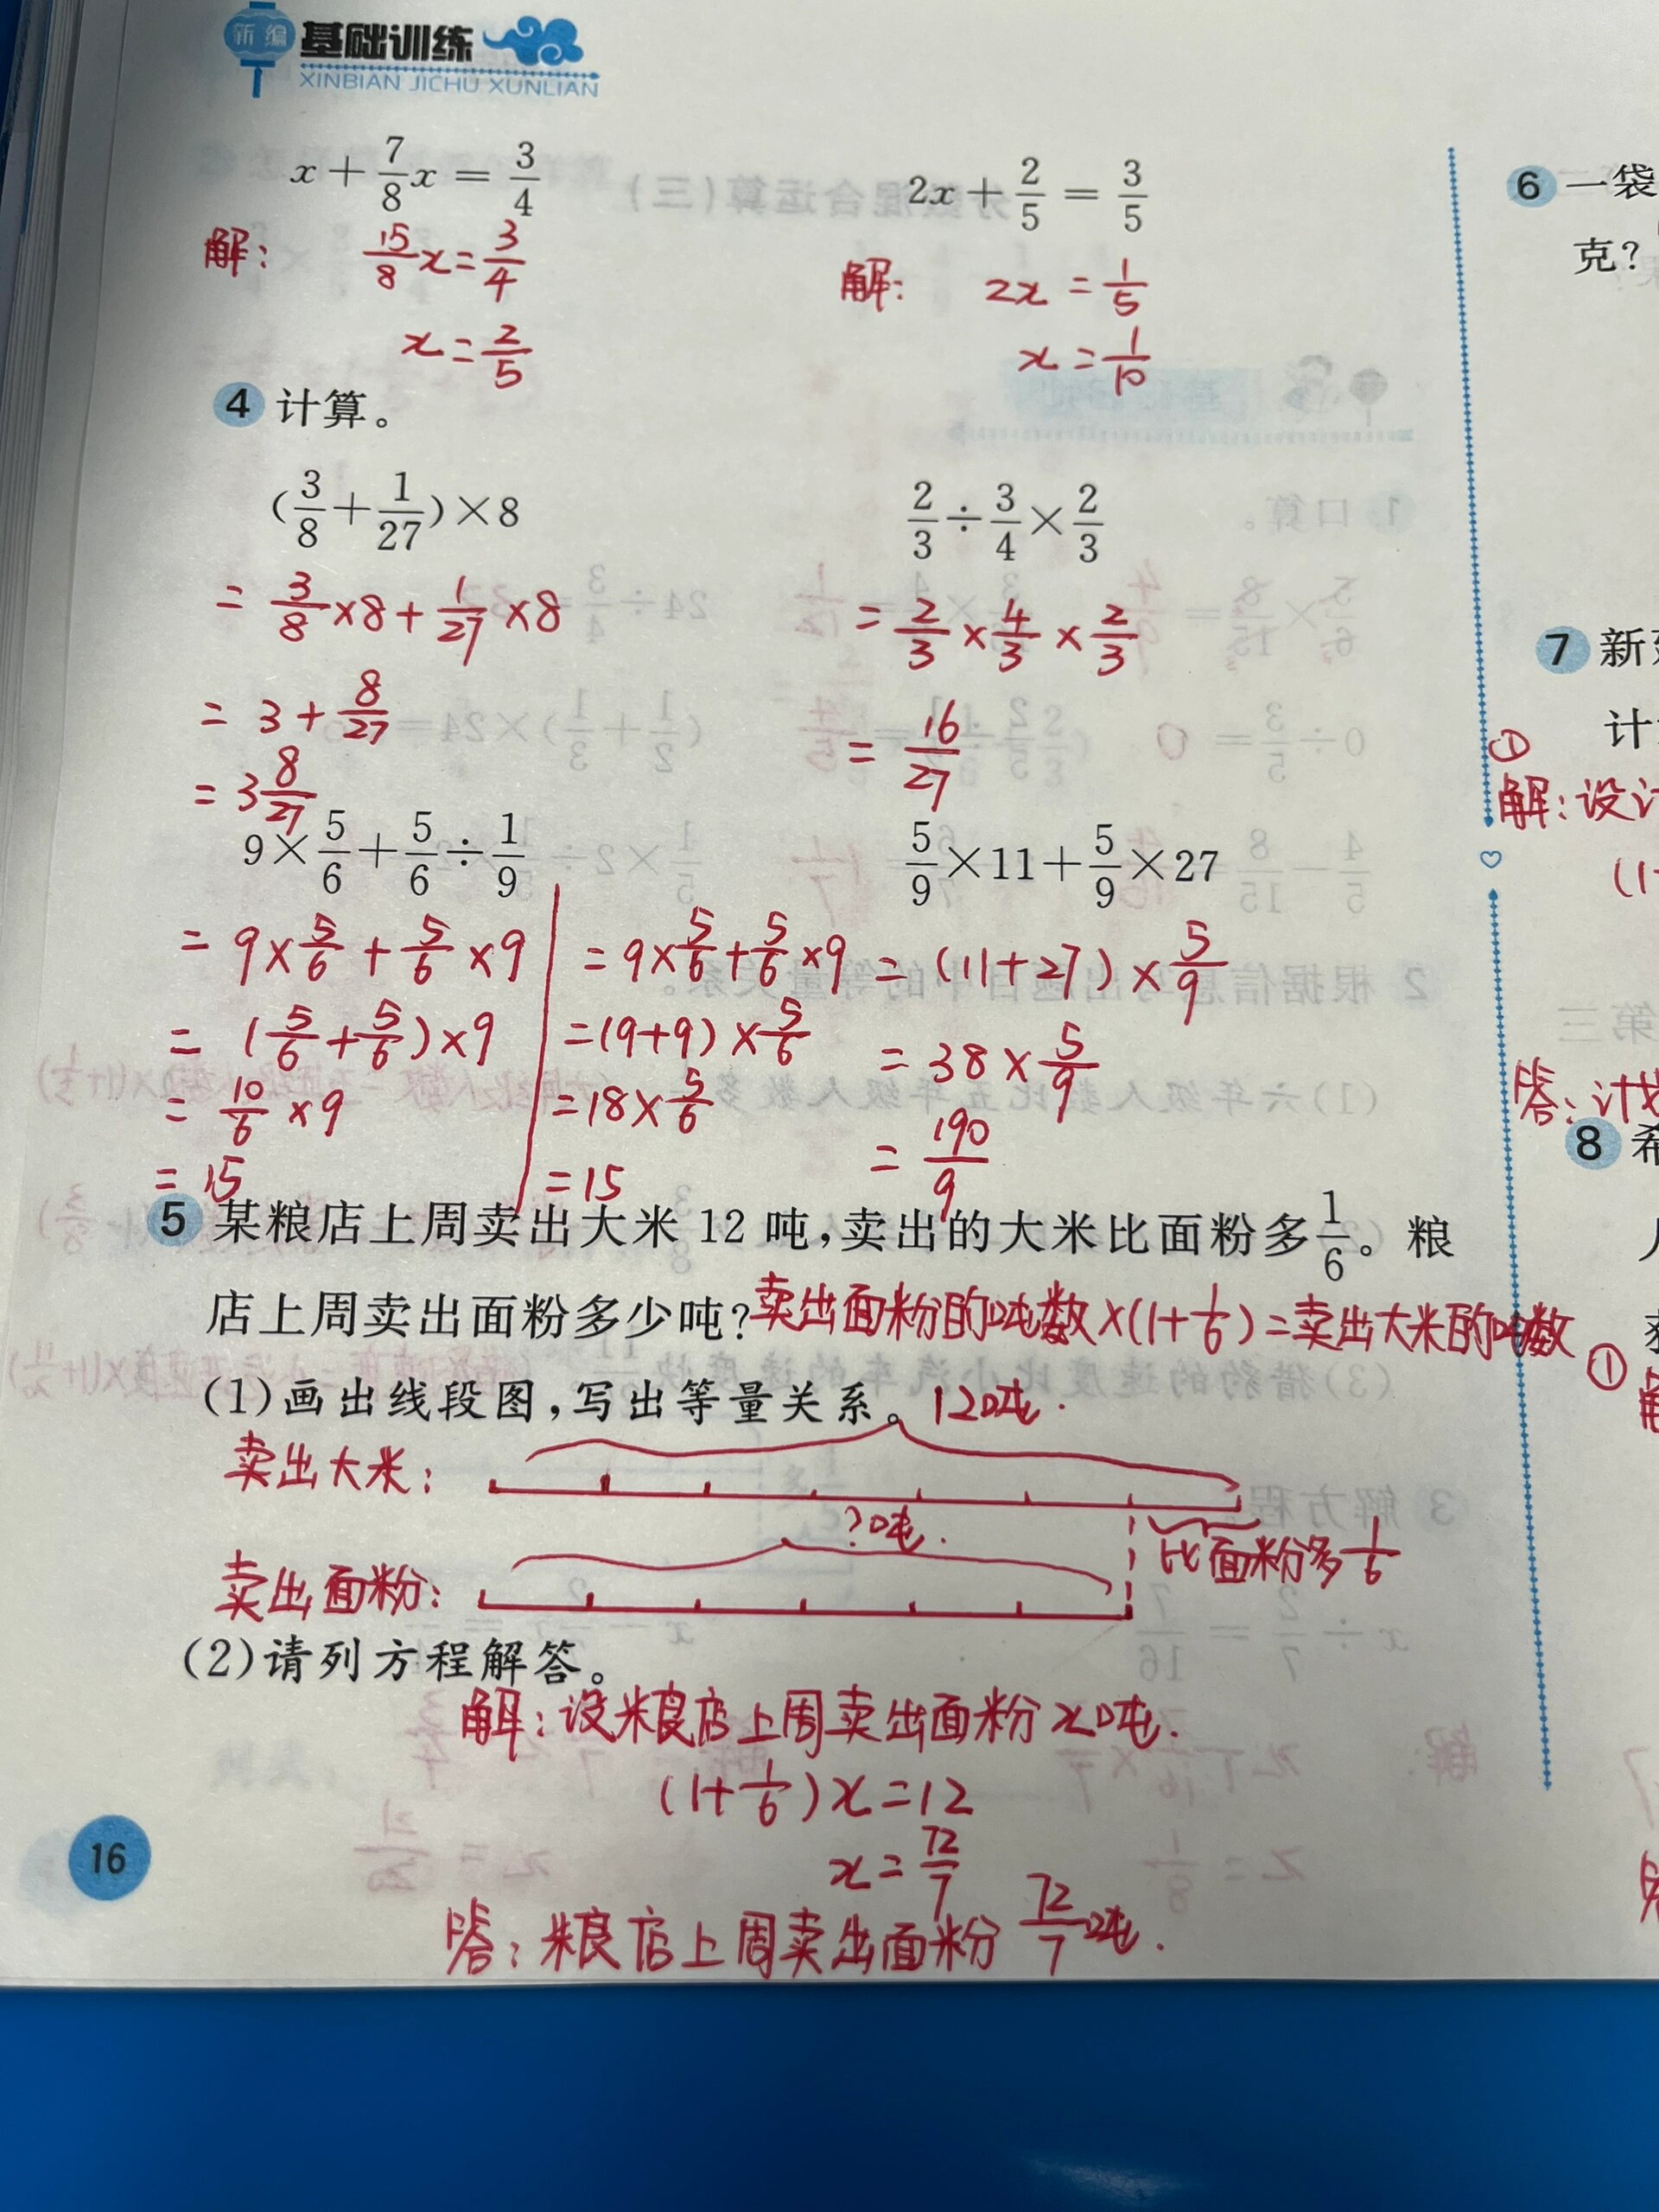 新编 基础训练
XINBIAN JICHU XUNLIAN
x + 7/8 x = 3/4
解: 15/8 x = 3/4
x = 2/5
2x + 2/5 = 3/5
解: 2x = 1/5
x = 1/10
4 计算。
(3/8 + 1/27) × 8
= 3/8 × 8 + 1/27 × 8
= 3 + 8/27
= 3 8/27
2/3 ÷ 3/4 × 2/3
= 2/3 × 4/3 × 2/3
= 16/27
9 × 5/6 + 5/6 ÷ 1/9
= 9 × 5/6 + 5/6 × 9
= (5/6 + 5/6) × 9
= 10/6 × 9
= 15
= 9 × 5/6 + 5/6 × 9
= (9+9) × 5/6
= 18 × 5/6
= 15
5/9 × 11 + 5/9 × 27
= (11+27) × 5/9
= 38 × 5/9
= 190/9
5 某粮店上周卖出大米 12 吨,卖出的大米比面粉多 1/6。粮
店上周卖出面粉多少吨? 卖出面粉的吨数×(1+1/6)=卖出大米的吨数
(1)画出线段图,写出等量关系。
12吨.
卖出大米:
?吨.
比面粉多 1/6
卖出面粉:
(2)请列方程解答。
解:设粮店上周卖出面粉x吨.
(1+1/6)x=12
x = 72/7
答:粮店上周卖出面粉 72/7 吨.
16
6 一袋
克?
7 新
计
①
解:设计
(1
答:计划
8 希
①